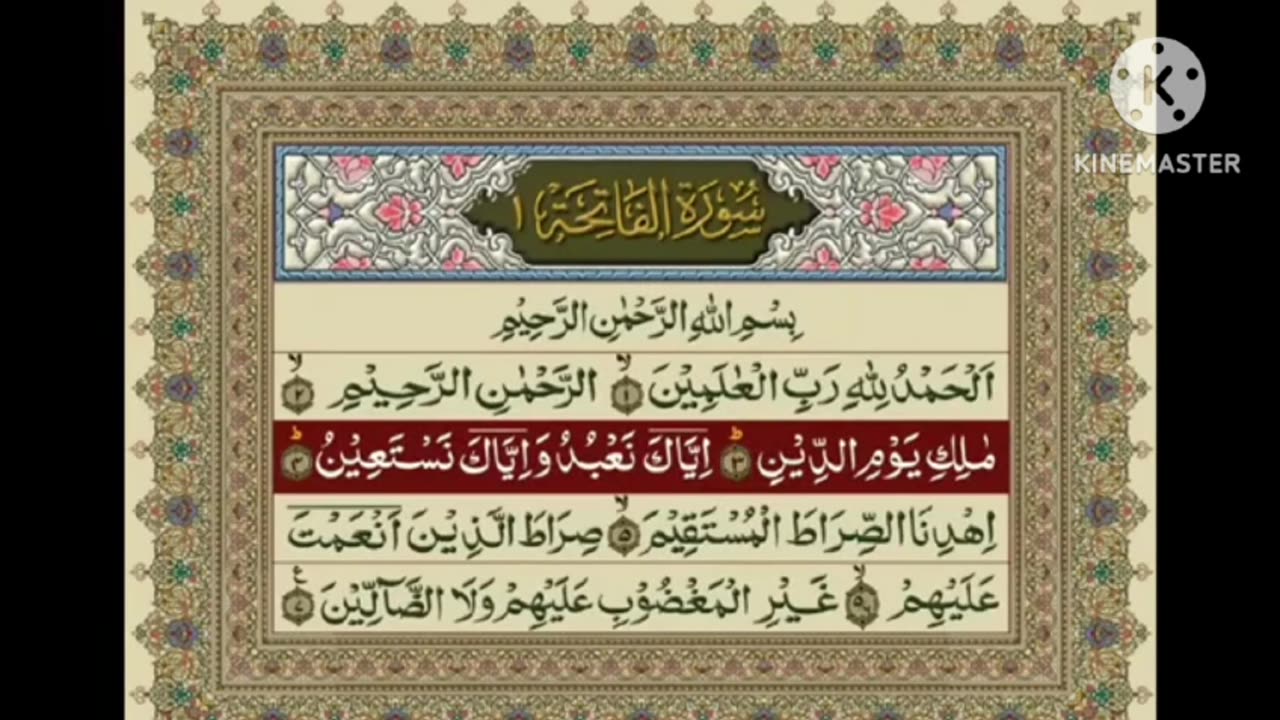 KINEMASTER
سُوْرَةُ الْفَاتِحَةِ ١
بِسْمِ اللّٰهِ الرَّحْمٰنِ الرَّحِيْمِ
اَلْحَمْدُ لِلّٰهِ رَبِّ الْعٰلَمِيْنَ ۙ﴿۱﴾ الرَّحْمٰنِ الرَّحِيْمِ ۙ﴿۲﴾
مٰلِكِ يَوْمِ الدِّيْنِ ؕ﴿۳﴾ اِيَّاكَ نَعْبُدُ وَاِيَّاكَ نَسْتَعِيْنُ ؕ﴿۴﴾
اِهْدِنَا الصِّرَاطَ الْمُسْتَقِيْمَ ۙ﴿۵﴾ صِرَاطَ الَّذِيْنَ اَنْعَمْتَ
عَلَيْهِمْ ۙ﴿۶﴾ غَيْرِ الْمَغْضُوْبِ عَلَيْهِمْ وَلَا الضَّآلِّيْنَ ﴿۷﴾